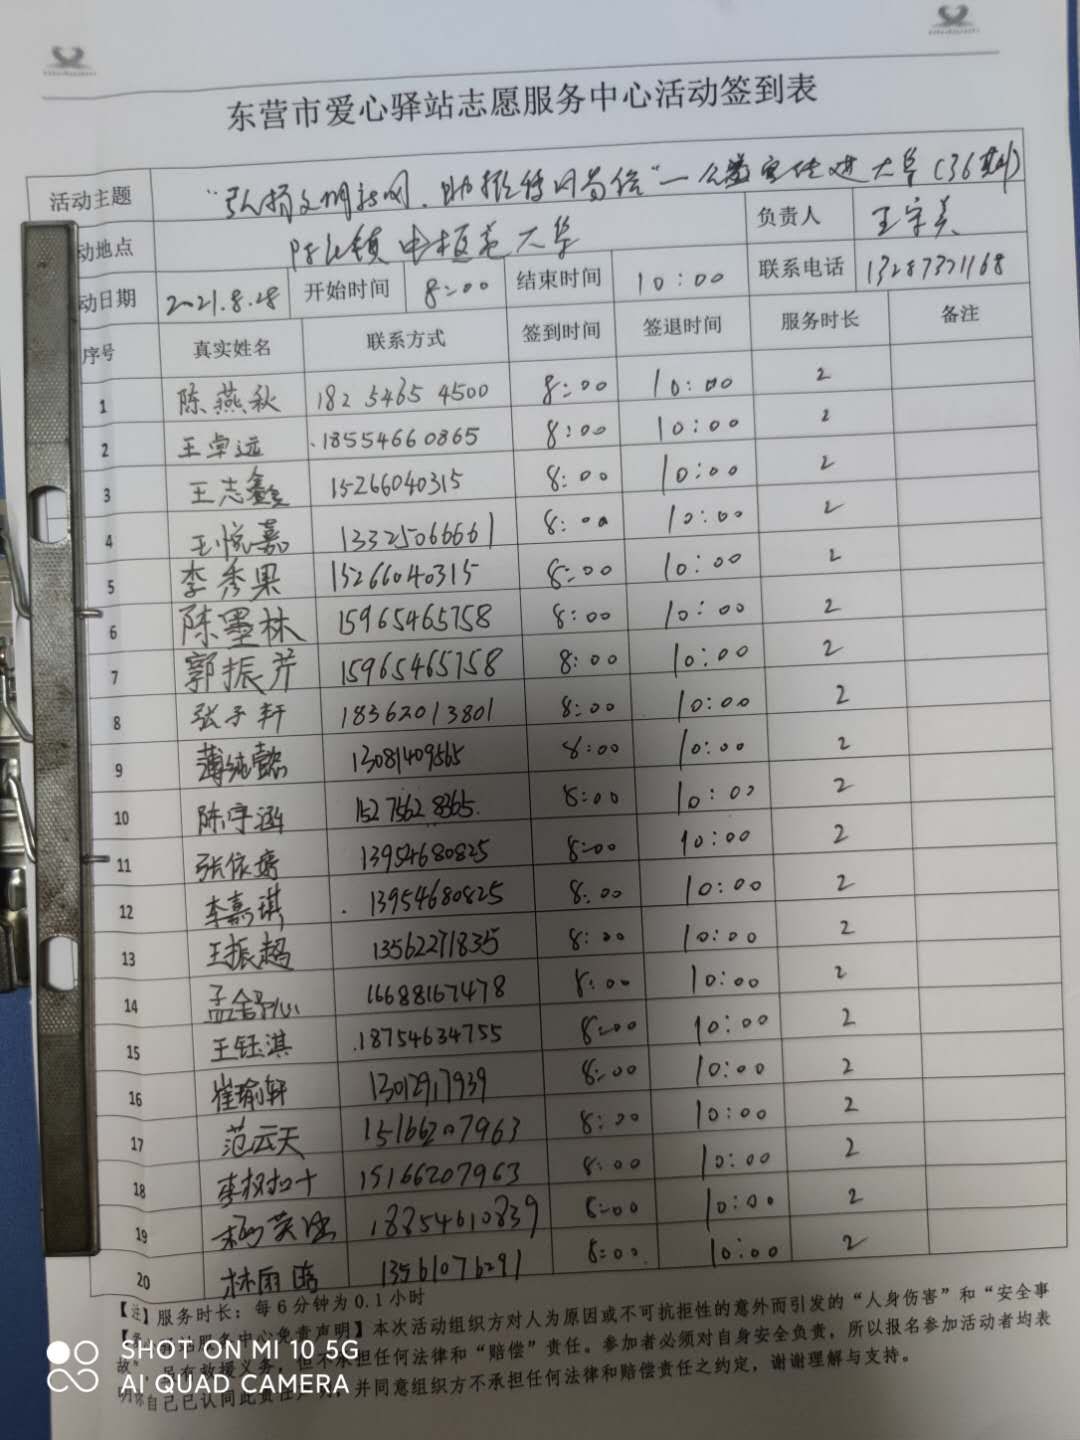 东营市爱心驿站志愿服务中心活动签到表
活动主题 "弘扬文明新风、助推
动地点 大集 负责人 王字美
动日期 2021.8.28 开始时间 8:00 结束时间 10:00 联系电话 13287321168
序号 真实姓名 联系方式 签到时间 签退时间 服务时长 备注
1 陈燕秋 182 5465 4500 8:00 10:00 2
2 王卓远 18554660865 8:00 10:00 2
3 王志鑫 15266040315 8:00 10:00 2
4 王悦嘉 13325066661 8:00 10:00 2
5 李秀果 15266040315 8:00 10:00 2
6 陈墨林 15965465758 8:00 10:00 2
7 郭振芹 15965465758 8:00 10:00 2
8 张子轩 18362013801 8:00 10:00 2
9 薄纯懿 13081409565 8:00 10:00 2
10 陈宇涵 152 7562 8365. 8:00 10:00 2
11 张依婷 13954680825 8:00 10:00 2
12 李嘉琪 13954680825 8:00 10:00 2
13 王振超 13562271835 8:00 10:00 2
14 孟舒心 16688167478 8:00 10:00 2
15 王钰淇 18754634755 8:00 10:00 2
16 崔瑜轩 13012917939 8:00 10:00 2
17 范云天 15166207963 8:00 10:00 2
18 15166207963 8:00 10:00 2
19 18854610839 8:00 10:00 2
20 林雨 13561076291 8:00 10:00 2
【注】服务时长：每6分钟为0.1小时
站服务中心免责声明】本次活动组织方对人为原因或不可抗拒性的意外而引发的“人身伤害”和“安全事
故”，只有救援义务，但不承担任何法律和“赔偿”责任。参加者必须对自身安全负责，所以报名参加活动者均表
明你自己已认同此责任声明，并同意组织方不承担任何法律和赔偿责任之约定，谢谢理解与支持。
SHOT ON MI 10 5G
AI QUAD CAMERA